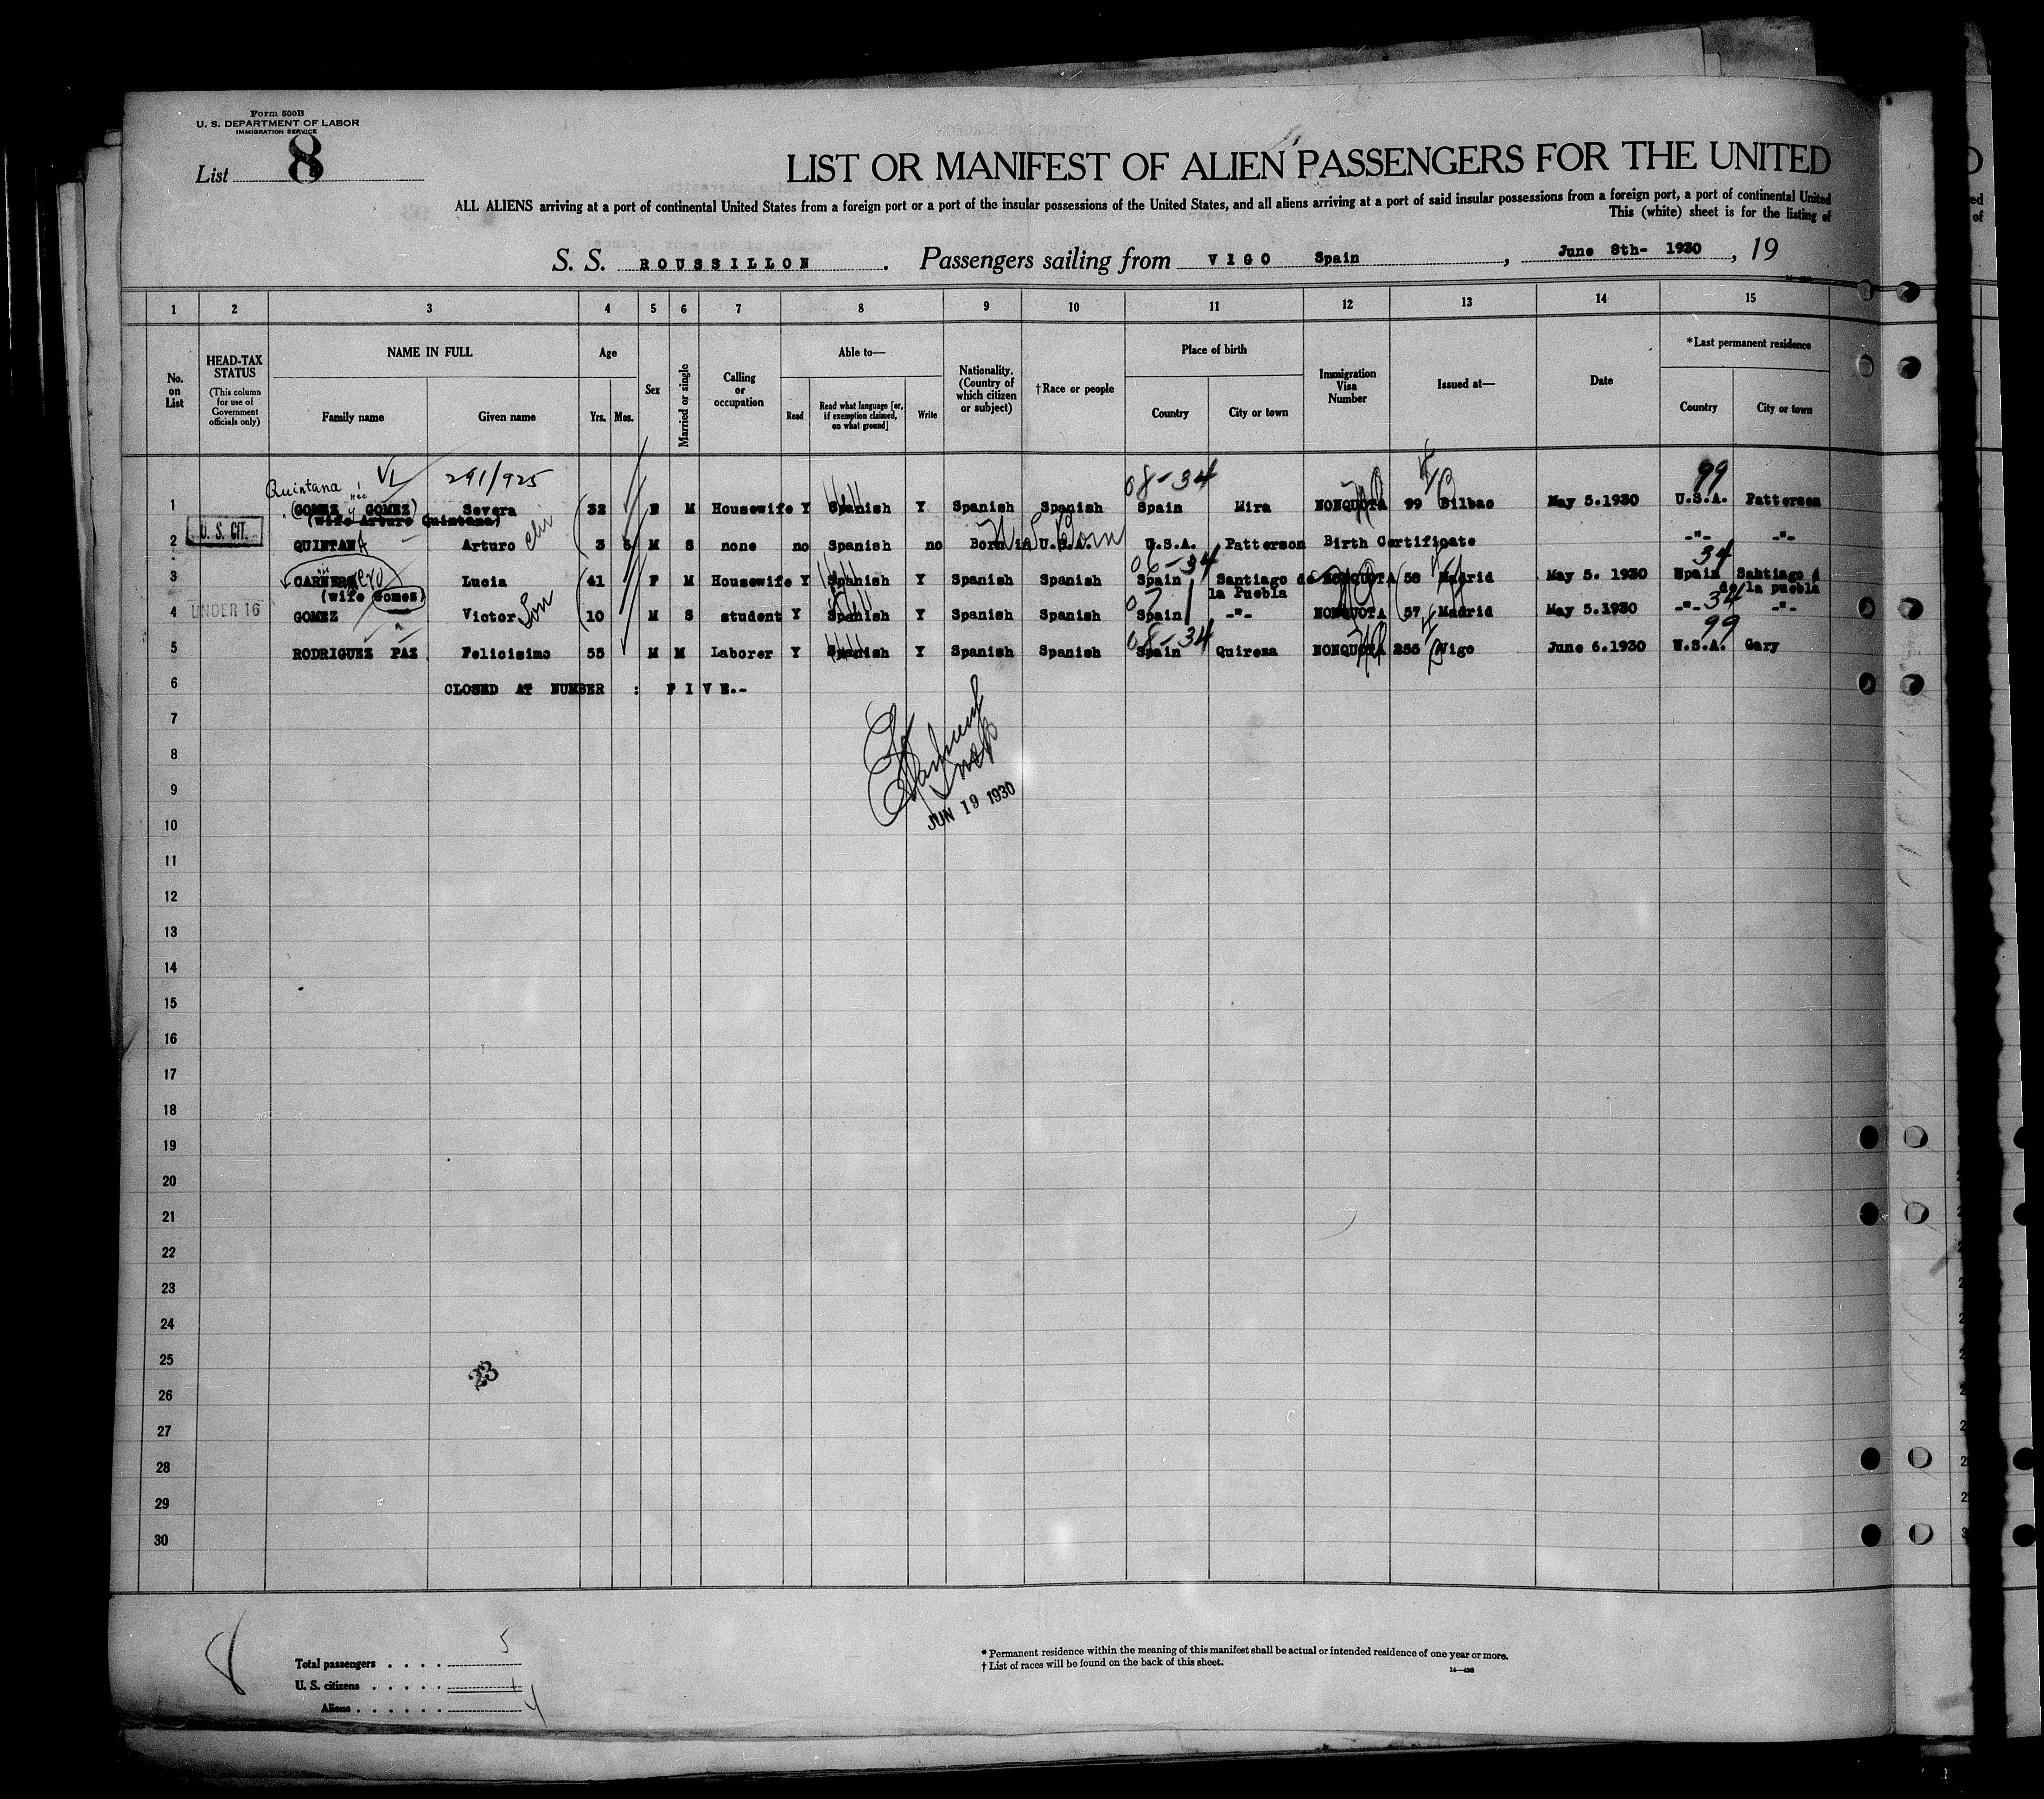 Form 500B
U. S. DEPARTMENT OF LABOR
IMMIGRATION SERVICE
List 8
LIST OR MANIFEST OF ALIEN PASSENGERS FOR THE UNITED
ALL ALIENS arriving at a port of continental United States from a foreign port or a port of the insular possessions of the United States, and all aliens arriving at a port of said insular possessions from a foreign port, a port of continental United
This (white) sheet is for the listing of
S. S. ROUSSILLON . Passengers sailing from VIGO Spain , June 8th- 1930 , 19
1 2 3 4 5 6 7 8 9 10 11 12 13 14 15
No. on List
HEAD-TAX STATUS (This column for use of Government officials only)
NAME IN FULL Family name Given name
Age Yrs. Mos.
Sex
Married or single
Calling or occupation
Able to— Read Read what language [or, if exemption claimed, on what ground] Write
Nationality. (Country of which citizen or subject)
†Race or people
Place of birth Country City or town
Immigration Visa Number
Issued at—
Date
*Last permanent residence Country City or town
Quintana née VL 291/925 08-34 99
1 (GOMEZ y GOMEZ) Severa 32 F M Housewife Y Spanish Y Spanish Spanish Spain Mira NONQUOTA 99 Bilbao May 5.1930 U.S.A. Patterson
(wife Arturo Quintana)
U. S. CIT.
2 QUINTANA Arturo 3 M S none no Spanish no Born in U.S.A. U S Born U.S.A. Patterson Birth Certificate -"- -"-
06-34 34
3 CARNERO Lucia 41 F M Housewife Y Spanish Y Spanish Spanish Spain Santiago de la Puebla NONQUOTA 58 Madrid May 5. 1930 Spain Santiago de la puebla
(wife Gomez)
UNDER 16
4 GOMEZ Victor Son 10 M S student Y Spanish Y Spanish Spanish 07 Spain -"- NONQUOTA 57 Madrid May 5.1930 -"- 34 -"-
08-34 99
5 RODRIGUEZ PAZ Felicisimo 55 M M Laborer Y Spanish Y Spanish Spanish Spain Quireza NONQUOTA 255 Vigo June 6.1930 U.S.A. Gary
6 CLOSED AT NUMBER : FIVE.-
7
8
9
JUN 19 1930
10
11
12
13
14
15
16
17
18
19
20
21
22
23
24
25
23
26
27
28
29
30
8
Total passengers . . . . 5
U. S. citizens . . . . . 1
Aliens . . . . . . 4
* Permanent residence within the meaning of this manifest shall be actual or intended residence of one year or more.
† List of races will be found on the back of this sheet.
14—430